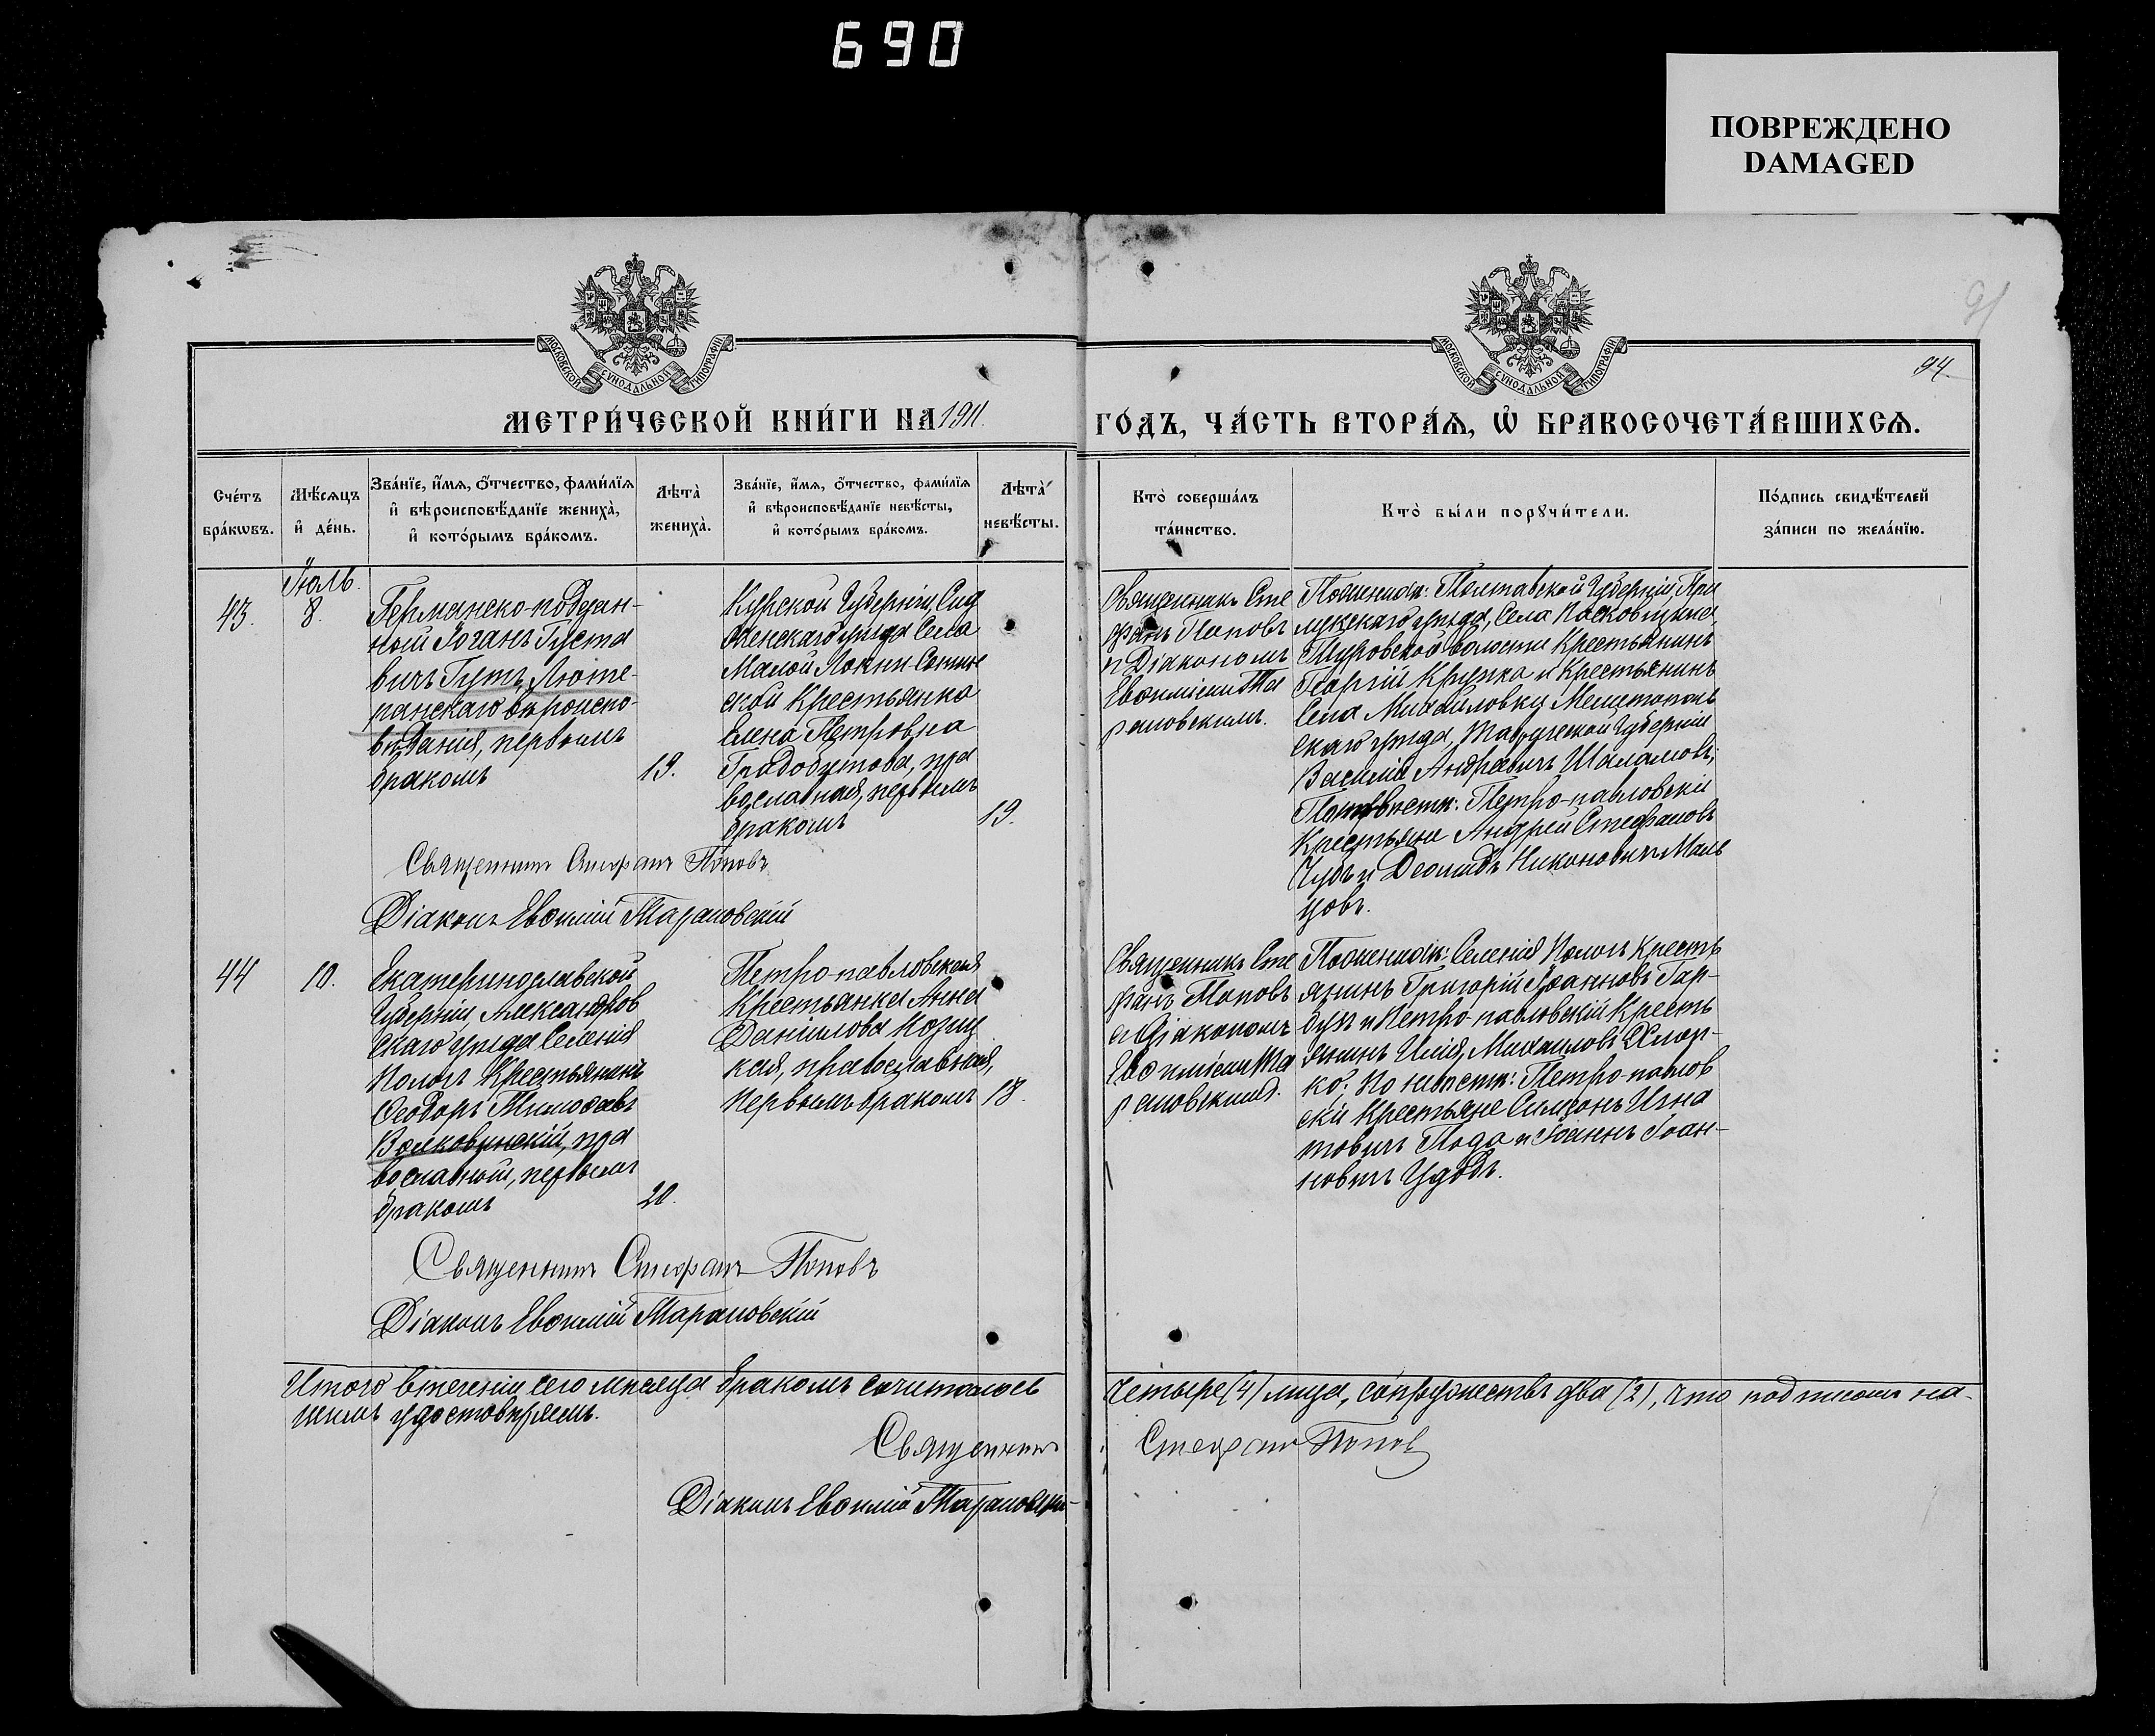 690
ПОВРЕЖДЕНО
DAMAGED
МОСКОВСКОЙ СУНОДАЛЬНОЙ ТИПОГРАФІИ
МОСКОВСКОЙ СУНОДАЛЬНОЙ ТИПОГРАФІИ
91
94
МЕТРИ́ЧЕСКОЙ КНИ́ГИ НА 1911.
ГО́ДЪ, ЧА́СТЬ ВТОРА́Ѧ, Ѽ БРАКОСОЧЕТА́ВШИХСѦ.
Сче́тъ
бра́кѡвъ.
Мѣ́сѧцъ
и҆ де́нь.
Зва́нїе, и҆́мѧ, ѻ҆́тчество, фами́лїѧ
и҆ вѣроисповѣ́данїе жениха̀,
и҆ кото́рымъ бра́комъ.
Лѣта̀
жениха̀.
Зва́нїе, и҆́мѧ, ѻ҆́тчество, фами́лїѧ
и҆ вѣроисповѣ́данїе невѣ́сты,
и҆ кото́рымъ бра́комъ.
Лѣта̀
невѣ́сты.
Кто̀ соверша́лъ
та́инство.
Кто̀ бы́ли порꙋчи́тели.
По́дпись свидѣ́телей
за́писи по жела́нїю.
Іюль
43.
8.
Германско-поддан-
ный Іоганъ Густа
вичъ Гутъ, Люте-
ранскаго вѣроиспо-
вѣданія, первымъ
бракомъ
19.
Курской Губерніи, Суд
женскаго уѣзда Села
Малой Локни
ской Крестьянка
Елена Петровна
Градобитова, пра
вославная, первымъ
бракомъ
19.
Священникъ Сте
фанъ Поповъ
и Діакономъ
Евѳиміем Та
рановскимъ.
По женихѣ: Полтавской Губерніи, При
лукскаго уѣзда, Села
волости Крестьянинъ
Георгій и Крестьянинъ
Села Михайловки Мелитополь
скаго уѣзда, Таврической Губерніи
Василій Андреевичъ Шаламовъ;
По невѣстѣ: Петро-павловскіи
Крестьяне Андрей Стефановъ
Чубъ и Леонидъ Никоновичъ Маль
цовъ.
Священникъ Стефанъ Поповъ
Діаконъ Евѳимій Тарановскій
44
10.
Екатеринославской
Губерніи, Александров
скаго уѣзда Селенія
Пологъ Крестьянинъ
Ѳеодоръ Тимоѳеевъ
Волковинскій, пра
вославный, первымъ
бракомъ
20.
Петро-павловская
Крестьянка Анна
Даніилова Козиц
кая, православная,
первымъ бракомъ
18.
Священникъ Сте
фанъ Поповъ
и Діакономъ
Евѳиміем Та
рановскимъ.
По женихѣ: Селенія Пологъ Кресть
янинъ Григорій Іоанновъ Гар-
бузъ и Петро-павловскій Кресть
янинъ Илія Михаиловъ
По невѣстѣ: Петро-павлов
скіи Крестьяне Симеонъ Игна
товичъ и Іоаннъ Іоан-
новичъ Удодъ.
Священникъ Стефанъ Поповъ
Діаконъ Евѳимій Тарановскій
Итого въ теченіи сего мѣсяца бракомъ сочиталось
четыре (4) лица, супружествъ два (2), что подписомъ на-
шимъ удостовѣряемъ.
Священникъ Стефанъ Попов
Діаконъ Евѳимій Тарановскій